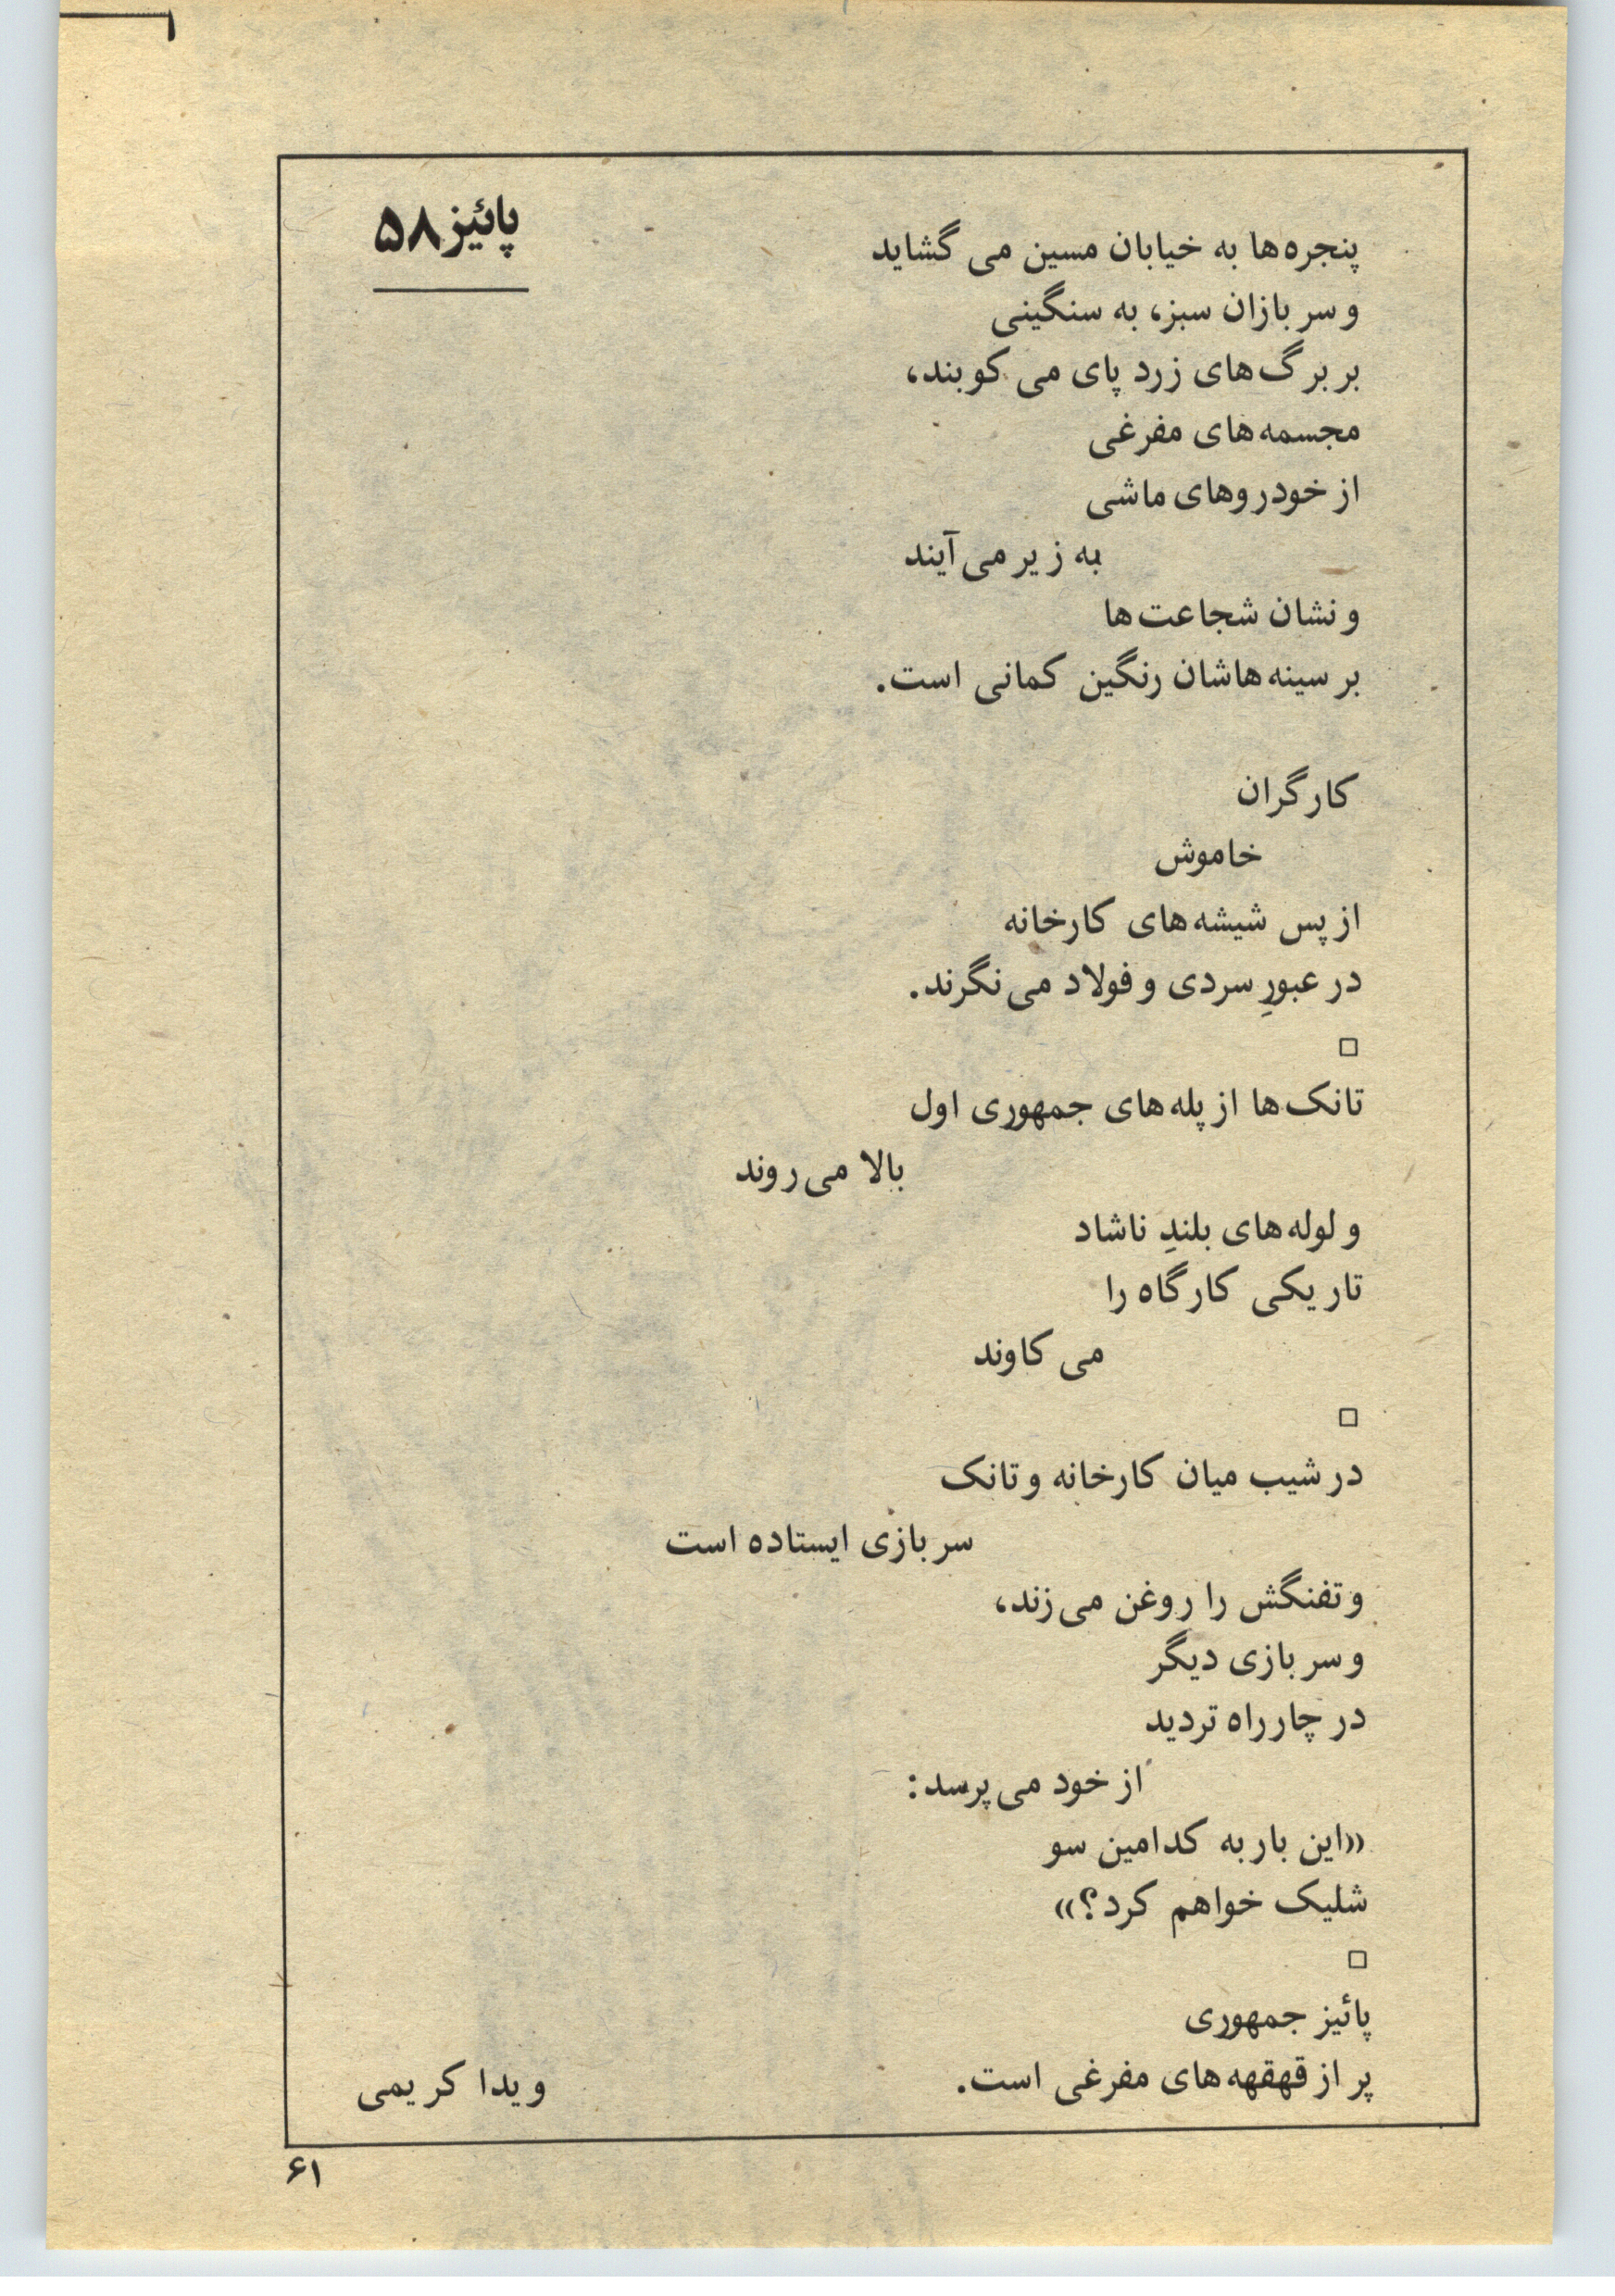 پائیز ۵۸
پنجره‌ها به خیابان مسین می گشاید
و سر بازان سبز، به سنگینی
بر برگ‌های زرد پای می کوبند،
مجسمه‌های مفرغی
از خودروهای ماشی
به زیر می‌آیند
و نشان شجاعت‌ها
بر سینه‌هاشان رنگین کمانی است.
کارگران
خاموش
از پس شیشه‌های کارخانه
در عبورِ سردی و فولاد می‌نگرند.
□
تانک‌ها از پله‌های جمهوری اول
بالا می‌روند
و لوله‌های بلندِ ناشاد
تاریکی کارگاه را
می کاوند
□
در شیب میان کارخانه و تانک
سر بازی ایستاده است
و تفنگش را روغن می‌زند،
و سر بازی دیگر
در چارراه تردید
از خود می‌پرسد:
«این بار به کدامین سو
شلیک خواهم کرد؟»
□
پائیز جمهوری
پر از قهقهه‌های مفرغی است.
ویدا کریمی
۶۱